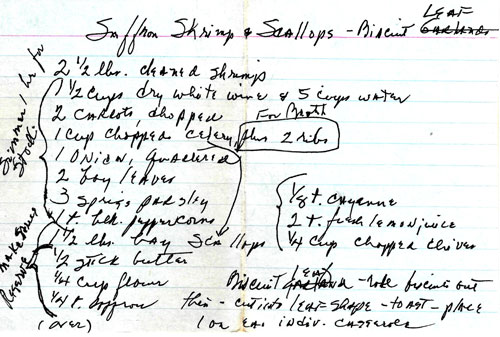 Saffron Shrimp & Scallops - Biscuit Leaf
2 1/2 lbs. cleaned shrimp
1 1/2 cups dry white wine & 5 cups water
2 carrots, chopped
For Broth
1 cup chopped celery, plus 2 ribs
1 onion, quartered
2 bay leaves
3 sprigs parsley
1 t. blk. peppercorns
1 1/2 lbs. bay scallops
1/2 stick butter
1/4 cup flour
1/4 t. saffron
(over)
Simmer 1 hr for Stock
Make Sauce
Reserve
1/8 t. cayenne
2 t. fresh lemon juice
1/4 cup chopped chives
Biscuit Leaf - roll biscuits out
thin - cut into leaf-shape - toast - place
1 on ea. indiv. casserole